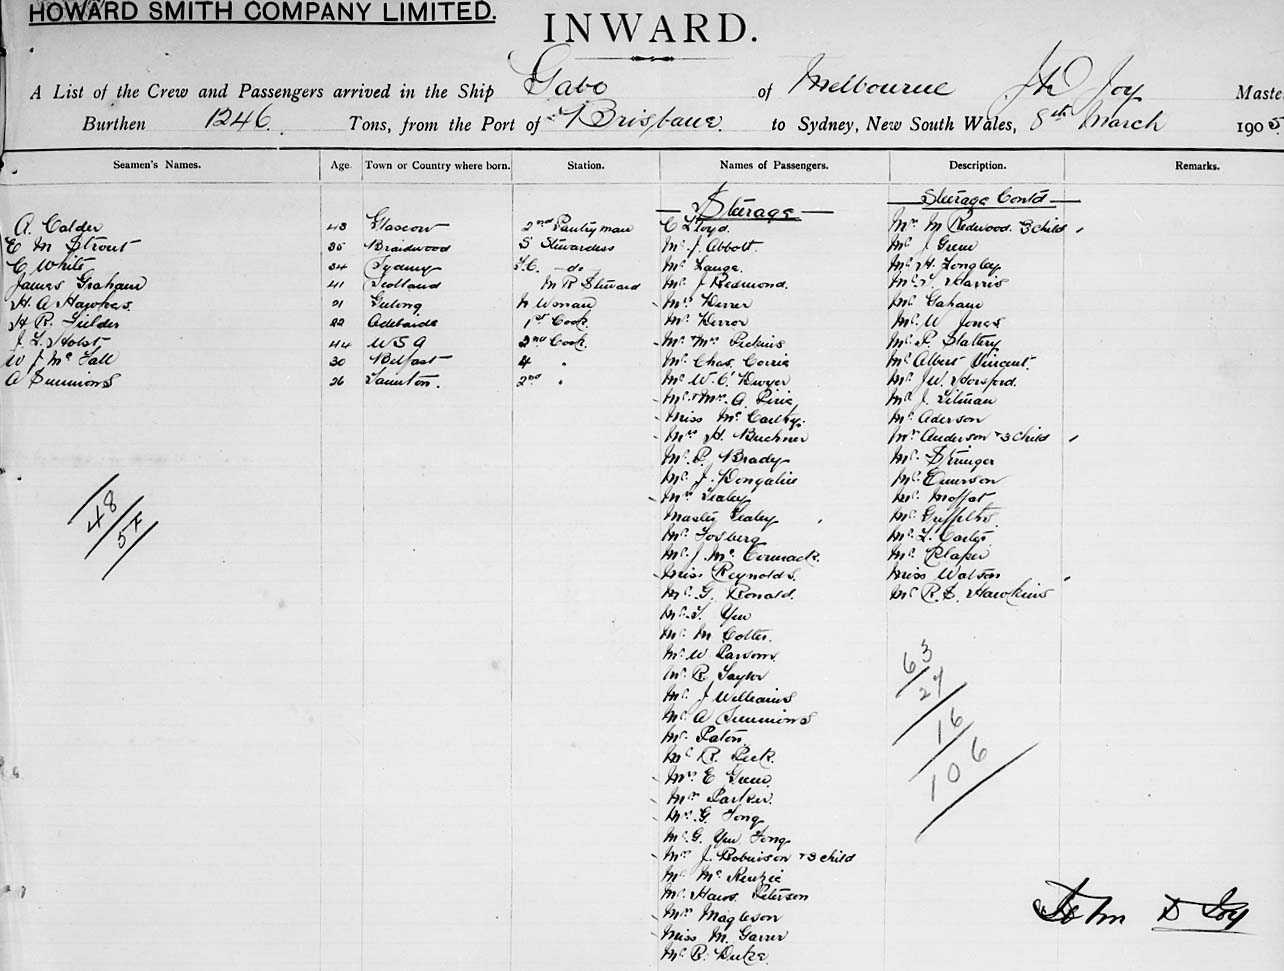 HOWARD SMITH COMPANY LIMITED.
INWARD.
A List of the Crew and Passengers arrived in the Ship Gabo of Melbourne Joy Master
Burthen 1246 Tons, from the Port of Brisbane. to Sydney, New South Wales, 8th March 1905
Seamen's Names. Age. Town or Country where born. Station. Names of Passengers. Description. Remarks.
A. Calder 43 Glascow 2nd Pantryman
E M Strout 35 Braidwood S Stewardess
C White 34 Sydney F.C. -do-
James Graham 41 Scotland M R Steward
H. A. Hawkes. 21 Geelong Woman
H R. Fielder 22 Adelaide 1st Cook.
J. F. Holst 44 USA 2nd Cook.
W J Mc Fall 30 Belfast 4 "
A Simmons 26 Taunton. 2nd "
48
57
Steerage
C Lloyd.
Mr. J. Abbott.
Mr. Lange.
Mr. J Redmond.
Mrs Herror
Mr. Herror
Mr. Mrs Perkins
Mr. Chas. Corrie
Mr. W. O' Dwyer
Mr. & Mrs. A. Pirie
Miss Mc Carthy.
Mrs H. Buchner
Mr. P. Brady
Mr. J.
Mrs Lealey
Master Lealey
Mr. Fosberg
Mr. J. Mc Cormack.
Miss Reynolds.
Mr. G. Ronald.
Mr. Yee
Mr. M Cotter.
Mr. W Parsons
Mr. R. Taylor
Mr. J Williams
Mr. A Simmons
Mr. Paton
Mr. R. Peck.
Mrs E Green
Mrs Parker.
Mrs. G. Fong
Mr. G. Yee Fong
Mrs J. Robinson + 3 child
Mr. Mc Kenzie
Mr. Hans Peterson
Mrs Magleson
Miss M. Garrer
Mr. R. Duke.
Steerage Contd
Mrs M Redwood 3 child
Mr. J. Green
Mr. H. Longley
Mr. Harris
Mr. Gaham
Mr. W Jones
Mr. P. Slattery
Mr Albert Vincent.
Mr. J W. Horsford.
Mr. J. Tilman
Mr. Aderson
Mrs Anderson + 3 child
Mr. Stringer
Mr. Emerson
Mr. Moffat
Mr. Griffiths
Mr. Carter
Mr.
Miss Watson
Mr R. S. Hawkins
63
27
16
106
John D Joy